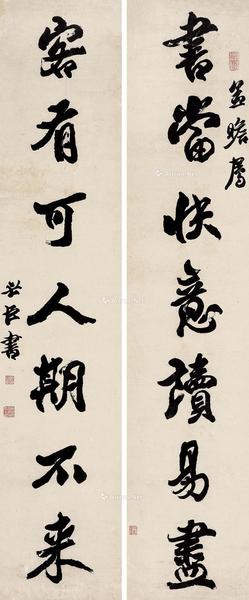 孟瞻屬
書當快意讀易盡
客有可人期不來
世臣書